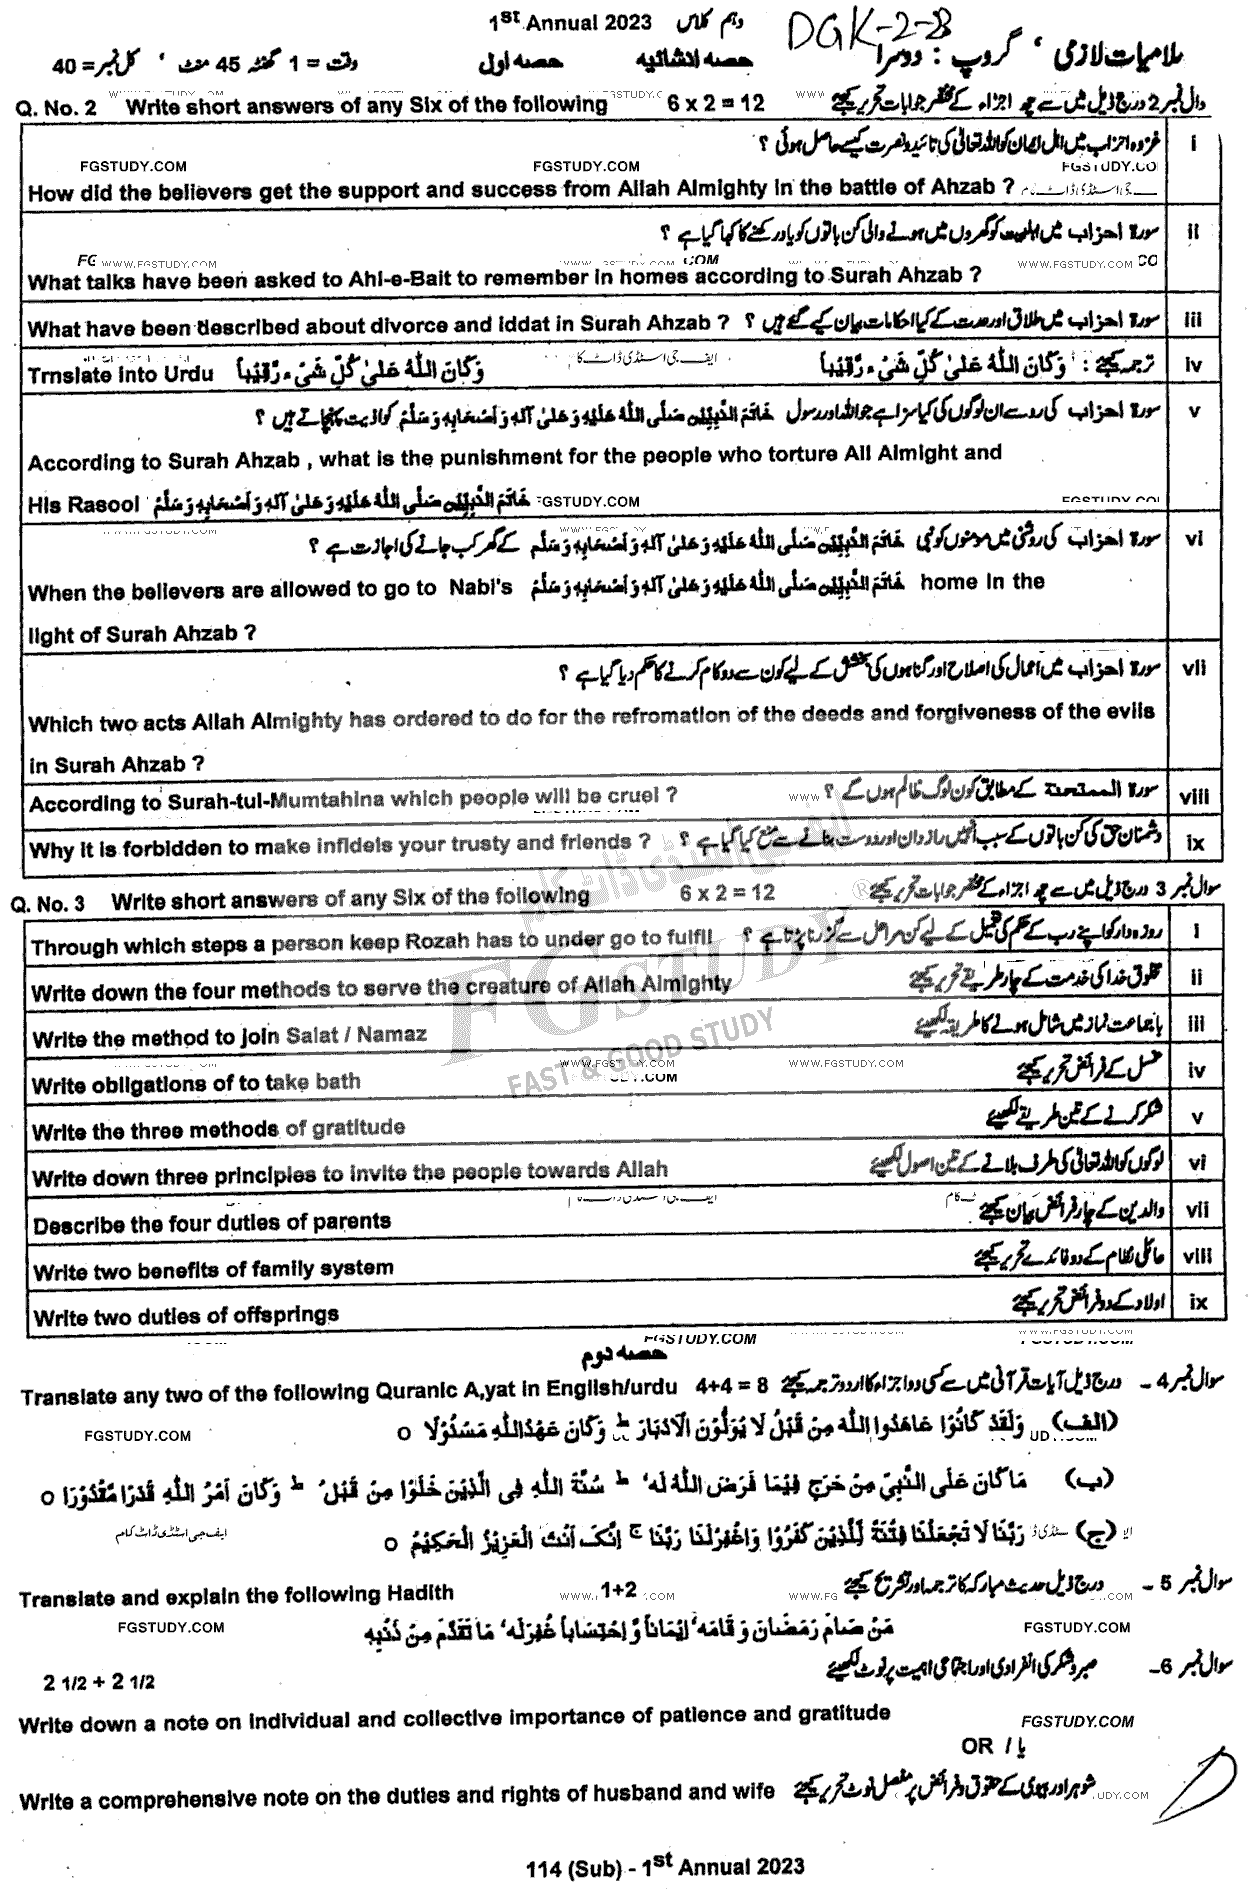 1st Annual 2023 دہم کلاس DGK-2-23
لامیات لازمی ، گروپ : دوسرا حصہ انشائیہ حصہ اول وقت = 1 گھنٹہ 45 منٹ ، کل نمبر = 40
Q. No. 2 Write short answers of any Six of the following 6 x 2 = 12 وال نمبر 2 درج ذیل میں سے چھ اجزاء کے مختصر جوابات تحریر کیجئے
i غزوہ احزاب میں اہل ایمان کو اللہ تعالیٰ کی تائید و نصرت کیسے حاصل ہوئی ؟
FGSTUDY.COM FGSTUDY.COM
How did the believers get the support and success from Allah Almighty in the battle of Ahzab ?
ii سورۃ احزاب میں اہلبیت کو گھروں میں ہونے والی کن باتوں کو یاد رکھنے کا کہا گیا ہے ؟
WWW.FGSTUDY.COM WWW.FGSTUDY.COM
What talks have been asked to Ahl-e-Bait to remember in homes according to Surah Ahzab ?
What have been described about divorce and iddat in Surah Ahzab ? سورۃ احزاب میں طلاق اور عدت کے کیا احکامات بیان کیے گئے ہیں ؟ iii
Trnslate into Urdu وَكَانَ اللّٰهُ عَلىٰ كُلِّ شَىْءٍ رَّقِيْباً ایف جی اسٹڈی ڈاٹ کام ترجمہ کیجئے : وَكَانَ اللّٰهُ عَلىٰ كُلِّ شَىْءٍ رَّقِيْباً iv
v سورۃ احزاب کی رو سے ان لوگوں کی کیا سزا ہے جو اللہ اور رسول خَاتَمُ النَّبِيّٖن صَلَّى اللّٰهُ عَلَيْهِ وَعَلىٰ آلِهٖ وَاَصْحَابِهٖ وَسَلَّمْ کو اذیت پہنچاتے ہیں ؟
According to Surah Ahzab , what is the punishment for the people who torture All Almight and
His Rasool خَاتَمُ النَّبِيّٖن صَلَّى اللّٰهُ عَلَيْهِ وَعَلىٰ آلِهٖ وَاَصْحَابِهٖ وَسَلَّمْ FGSTUDY.COM
vi سورۃ احزاب کی روشنی میں مومنوں کو نبی خَاتَمُ النَّبِيّٖن صَلَّى اللّٰهُ عَلَيْهِ وَعَلىٰ آلِهٖ وَاَصْحَابِهٖ وَسَلَّمْ کے گھر کب جانے کی اجازت ہے ؟
When the believers are allowed to go to Nabi's خَاتَمُ النَّبِيّٖن صَلَّى اللّٰهُ عَلَيْهِ وَعَلىٰ آلِهٖ وَاَصْحَابِهٖ وَسَلَّمْ home in the
light of Surah Ahzab ?
vii سورۃ احزاب میں اعمال کی اصلاح اور گناہوں کی بخشش کے لیے کون سے دو کام کرنے کا حکم دیا گیا ہے ؟
Which two acts Allah Almighty has ordered to do for the refromation of the deeds and forgiveness of the evils
in Surah Ahzab ?
According to Surah-tul-Mumtahina which people will be cruel ? سورۃ الممتحنة کے مطابق کون لوگ ظالم ہوں گے ؟ viii
Why it is forbidden to make infidels your trusty and friends ? دشمنان حق کی کن باتوں کے سبب انہیں رازدان اور دوست بنانے سے منع کیا گیا ہے ؟ ix
Q. No. 3 Write short answers of any Six of the following 6 x 2 = 12 سوال نمبر 3 درج ذیل میں سے چھ اجزاء کے مختصر جوابات تحریر کیجئے
Through which steps a person keep Rozah has to under go to fulfil روزہ دار کو اپنے رب کے حکم کی تعمیل کے لیے کن مراحل سے گزرنا پڑتا ہے ؟ i
Write down the four methods to serve the creature of Allah Almighty مخلوق خدا کی خدمت کے چار طریقے تحریر کیجئے ii
Write the method to join Salat / Namaz باجماعت نماز میں شامل ہونے کا طریقہ لکھیئے iii
WWW.FGSTUDY.COM WWW.FGSTUDY.COM
Write obligations of to take bath غسل کے فرائض تحریر کیجئے iv
Write the three methods of gratitude شکر کرنے کے تین طریقے لکھیئے v
Write down three principles to invite the people towards Allah لوگوں کو اللہ تعالیٰ کی طرف بلانے کے تین اصول لکھیئے vi
Describe the four duties of parents والدین کے چار فرائض بیان کیجئے vii
Write two benefits of family system عائلی نظام کے دو فائدے تحریر کیجئے viii
Write two duties of offsprings اولاد کے دو فرائض تحریر کیجئے ix
FG STUDY ®
FAST & GOOD STUDY
FGSTUDY.COM
حصہ دوم
Translate any two of the following Quranic A,yat in English/urdu 4+4 = 8 سوال نمبر 4 ۔ درج ذیل آیات قرآنی میں سے کسی دو اجزاء کا اردو ترجمہ کیجئے
(الف) وَلَقَدْ كَانُوْا عَاهَدُوا اللّٰهَ مِنْ قَبْلُ لَا يُوَلُّوْنَ الْاَدْبَارَ ط وَكَانَ عَهْدُاللّٰهِ مَسْئُوْلًا o
FGSTUDY.COM
(ب) مَا كَانَ عَلَى النَّبِيِّ مِنْ حَرَجٍ فِيْمَا فَرَضَ اللّٰهُ لَهٗ ط سُنَّةَ اللّٰهِ فِى الَّذِيْنَ خَلَوْا مِنْ قَبْلُ ط وَكَانَ اَمْرُ اللّٰهِ قَدَرًا مَّقْدُوْرًا o
(ج) رَبَّنَا لَا تَجْعَلْنَا فِتْنَةً لِّلَّذِيْنَ كَفَرُوْا وَاغْفِرْلَنَا رَبَّنَا ج اِنَّكَ اَنْتَ الْعَزِيْزُ الْحَكِيْمُ o ایف جی اسٹڈی ڈاٹ کام
Translate and explain the following Hadith 1+2 سوال نمبر 5 ۔ درج ذیل حدیث مبارکہ کا ترجمہ اور تشریح کیجئے
FGSTUDY.COM مَنْ صَامَ رَمَضَانَ وَ قَامَهٗ اِيْمَاناً وَّ احْتِسَاباً غُفِرَلَهٗ مَا تَقَدَّمَ مِنْ ذَنْبِهٖ FGSTUDY.COM
2 1/2 + 2 1/2 سوال نمبر 6۔ صبر و شکر کی انفرادی اور اجتماعی اہمیت پر نوٹ لکھیئے
Write down a note on individual and collective importance of patience and gratitude FGSTUDY.COM
OR / یا
Write a comprehensive note on the duties and rights of husband and wife شوہر اور بیوی کے حقوق و فرائض پر مفصل نوٹ تحریر کیجئے
114 (Sub) - 1st Annual 2023